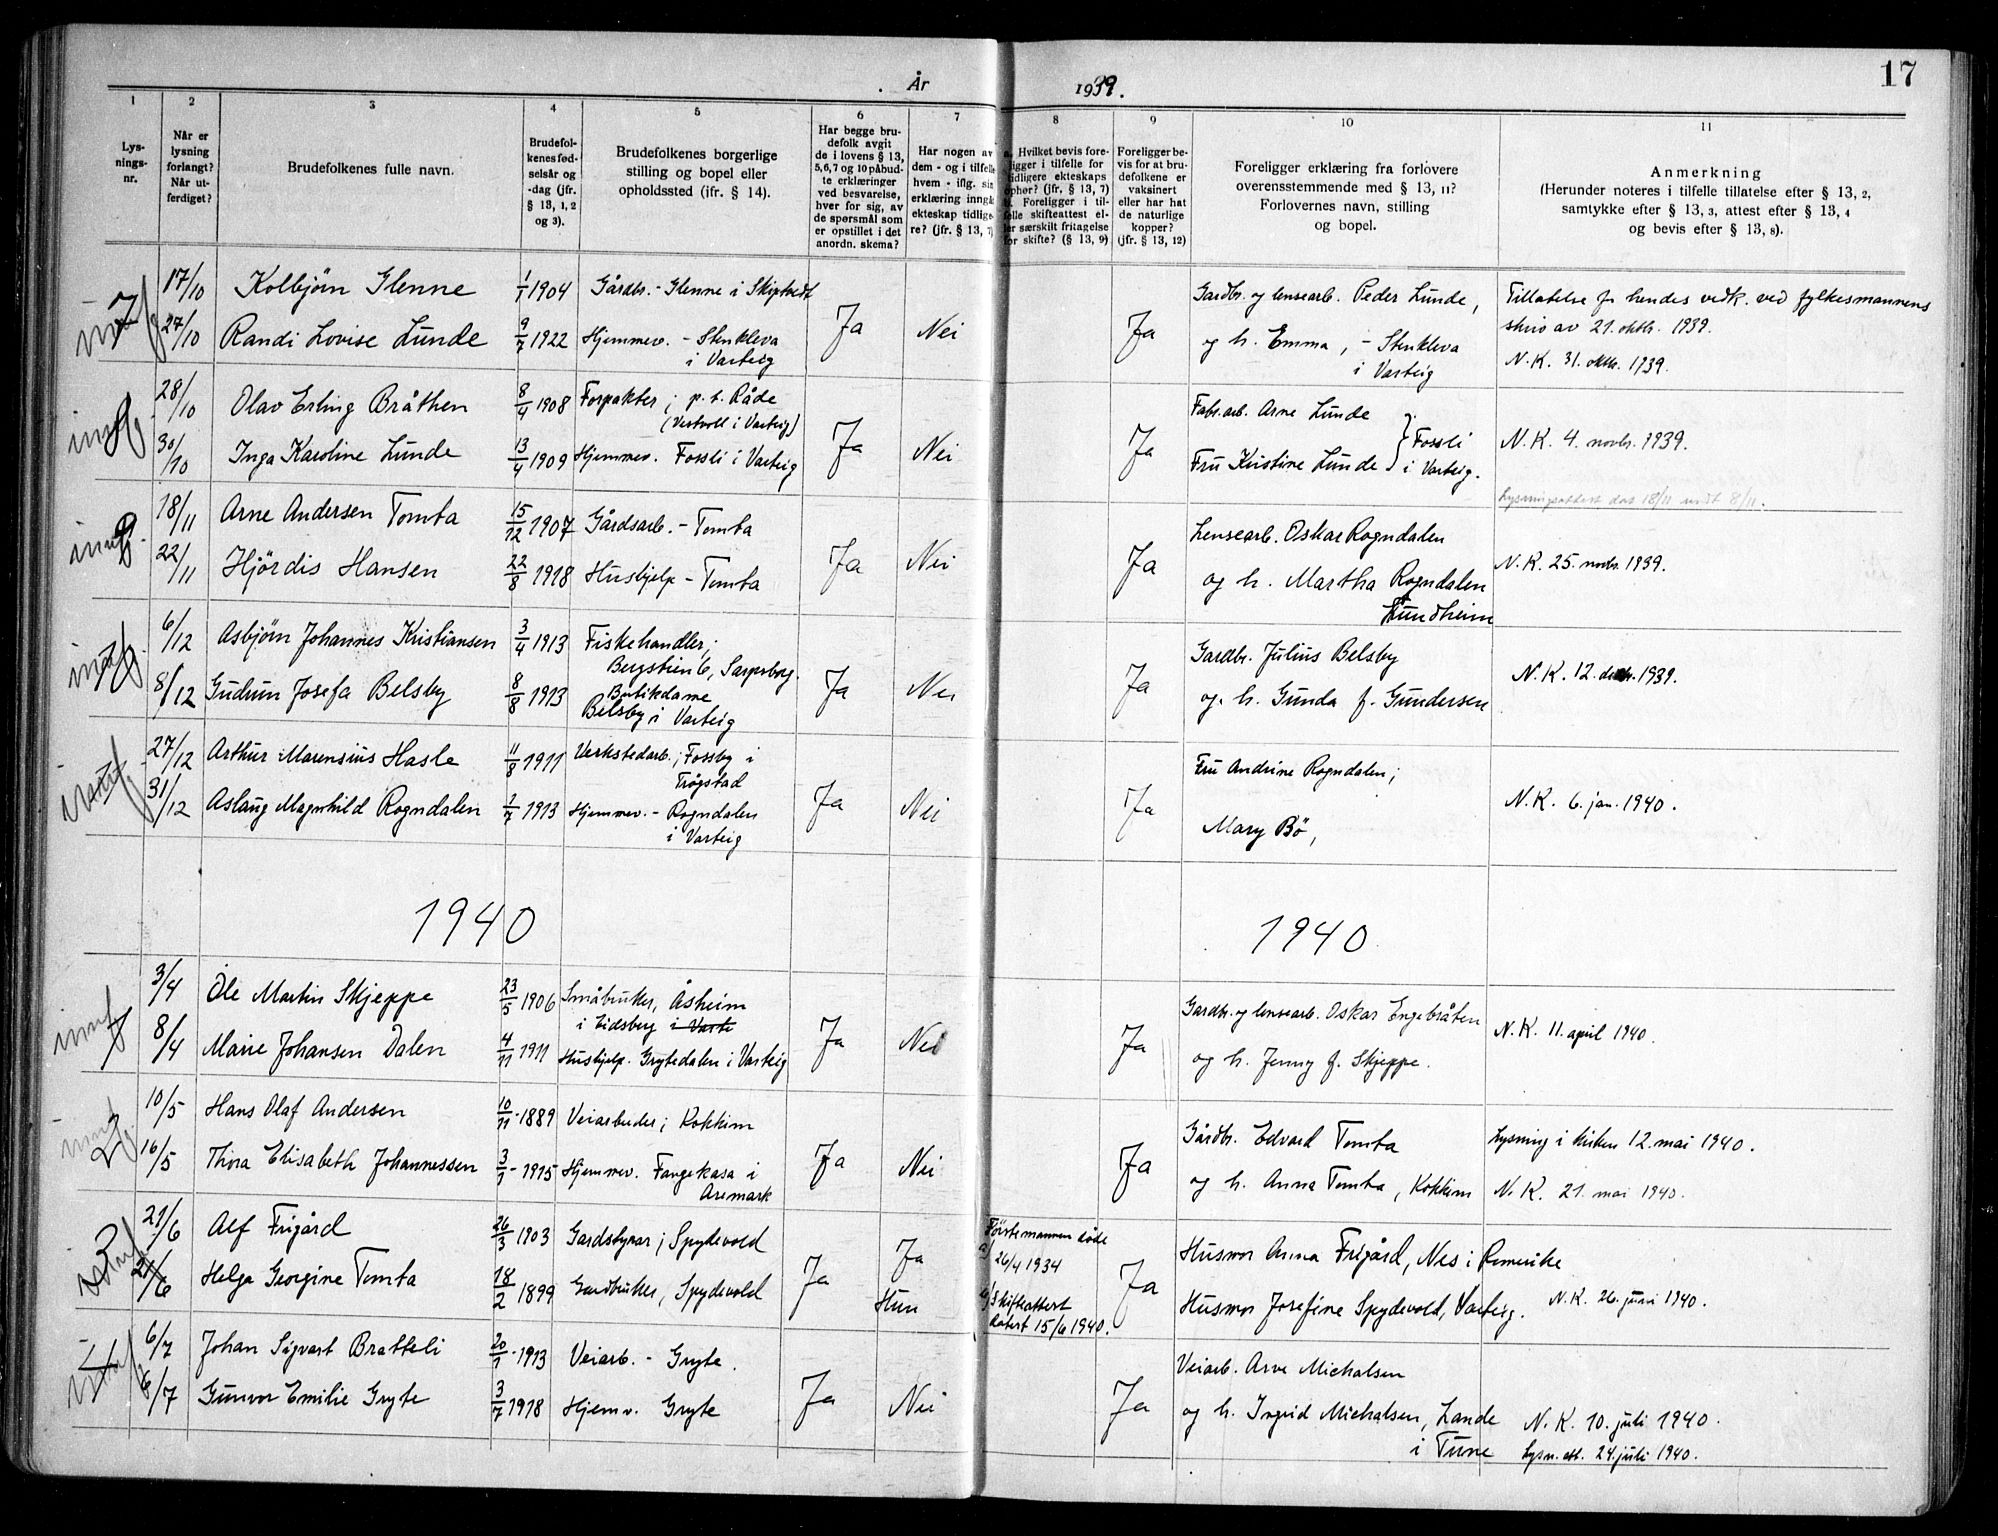 17
År 1939.
1 2 3 4 5 6 7 8 9 10 11
Lysningsnr.
Når er lysning forlangt? Når utferdiget?
Brudefolkenes fulle navn.
Brudefolkenes fødselsår og -dag (jfr. § 13, 1, 2 og 3).
Brudefolkenes borgerlige stilling og bopel eller opholdssted (jfr. § 14).
Har begge brudefolk avgit de i lovens § 13, 5,6,7 og 10 påbudte erklæringer ved besvarelse, hver for sig, av de spørsmål som er opstillet i det anordn. skema?
Har nogen av dem - og i tilfelle hvem - iflg. sin erklæring inngått ekteskap tidligere? (jfr. § 13, 7)
a. Hvilket bevis foreligger i tilfelle for tidligere ekteskaps ophør? (jfr. § 13, 7)
b. Foreligger i tilfelle skifteattest eller særskilt fritagelse for skifte? (§ 13, 9)
Foreligger bevis for at brudefolkene er vaksinert eller har hat de naturlige kopper? (jfr. § 13, 12)
Foreligger erklæring fra forlovere overensstemmende med § 13, 11? Forlovernes navn, stilling og bopel.
Anmerkning
(Herunder noteres i tilfelle tillatelse efter § 13, 2, samtykke efter § 13, 3, attest efter § 13, 4 og bevis efter § 13, 8).
17/10 Kolbjørn Glenne 1/1 1904 Gårdbr. - Glenne i Skiptvedt
27/10 Randi Lovise Lunde 9/7 1922 Hjemmev. - Stenkleva i Varteig
Ja Nei Ja
Gardbr. og lensearb. Peder Lunde,
og h. Emma, - Stenkleva
i Varteig
Tillatelse f. hendes vedk. ved fylkesmannens
skriv av 21. oktb. 1939.
N.K. 31. oktbr. 1939.
28/10 Olav Erling Bråthen 8/4 1908 Forpakter; p.t. Råde
(Vestvoll i Varteig)
30/10 Inga Karoline Lunde 13/4 1909 Hjemmev. Fossli i Varteig
Ja Nei Ja
Fabr.arb. Arne Lunde
Fru Kristine Lunde } Fossli i Varteig.
N.K. 4. novbr. 1939.
Lysningsattest dat 18/11 8/11.
18/11 Arne Andersen Tomta 15/12 1907 Gårdsarb. - Tomta
22/11 Hjördis Hansen 22/8 1918 Hushjelp - Tomta
Ja Nei Ja
Lensearb. Oskar Rogndalen
og h. Martha Rogndalen
Lundheim
N.K. 25. novbr. 1939.
6/12 Asbjørn Johannes Kristiansen 3/4 1913 Fiskehandler;
Bergstien 6, Sarpsborg.
8/12 Gudrun Josefa Belsby 8/8 1913 Butikdame
Belsby i Varteig
Ja Nei Ja
Gardbr. Julius Belsby
og. h. Gunda f. Gundersen
N.K. 12. desbr. 1939.
27/12 Arthur Marensius Hasle 11/8 1911 Verkstedarb.; Fossby i
Trøgstad
31/12 Aslaug Magnhild Rogndalen 2/7 1913 Hjemmev. - Rogndalen
i Varteig
Ja Nei Ja
Fru Andrine Rogndalen;
Mary Bö,
N.K. 6. jan. 1940.
1940 1940
3/4 Ole Martin Skjeppe 23/5 1906 Småbruker, Åsheim
i Eidsberg i Varte
8/4 Marie Johansen Dalen 4/11 1911 Hushjelp. Grytedalen i Varteig
Ja Nei Ja
Gardbr. og lensearb. Oskar Engebråten
og h. Jenny f. Skjeppe.
N.K. 11. april 1940.
10/5 Hans Olaf Andersen 10/11 - 1889 Veiarbeider; Kokkim
16/5 Thora Elisabeth Johannessen 3/1 - 1915 Hjemmev. Fangekasa i
Aremark
Ja Nei Ja
Gårdbr. Edvard Tomta
og h. Anna Tomta, Kokkim
Lysning i kirken 12. mai 1940.
N.K. 21. mai 1940.
3 21/6 Alf Frigård 26/3 1903 Gardstyrar; Spydevold
21/6 Helga Georgine Tomta 18/2 1899 Gardbruker, Spydevold
Ja Ja
Hun
Förstemannen döde
a) 26/4 1934
b) Skifteattest
datert 15/6 1940.
Ja
Husmor Anna Frigård, Nes i Romerike
Husmor Josefine Spydevold, Varteig.
N.K. 26. juni 1940.
6/7 Johan Sigvart Bratteli 20/1 - 1913 Veiarb. - Gryte.
6/7 Gunvor Emilie Gryte 3/7 1918 Hjemv. Gryte
Ja Nei Ja
Veiarb. Arve Michalsen
og h. Ingrid Michalsen, Lande
i Tune
N.K. 10. juli 1940.
Lysn.att. 24. juli 1940.